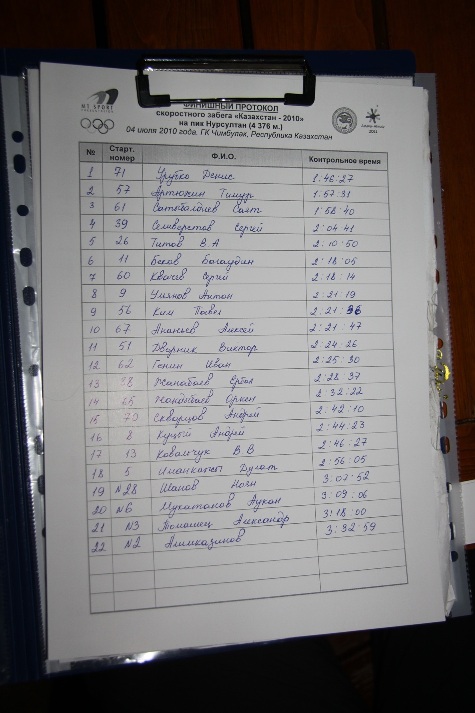 ФИНИШНЫЙ ПРОТОКОЛ
скоростного забега «Казахстан - 2010»
на пик Нурсултан (4 376 м.)
04 июля 2010 года, ГК Чимбулак, Республика Казахстан
№ Старт. номер Ф.И.О. Контрольное время
1 71 Урубко Денис 1:46:27
2 57 Артюхин Тимур 1:57:31
3 61 1:58:40
4 39 Селиверстов Сергей 2:04:41
5 26 Титов В А 2:10:50
6 11 Беков Богаудин 2:18:05
7 60 Квачев Сергей 2:18:14
8 9 Антон 2:21:19
9 56 Ким Павел 2:21:36
10 67 Ананьев Алексей 2:21:47
11 51 Дворник Виктор 2:24:26
12 62 Генин Иван 2:25:30
13 Жанабаев Ербол 2:28:37
14 2:32:22
15 Скварцов Андрей 2:42:10
16 8 Куцый Андрей 2:44:23
17 13 Ковальчук В В 2:46:27
18 5 2:56:05
19 №28 3:07:52
20 №6 Мукатанов 3:09:06
21 №3 Александр 3:18:00
22 №2 Алимказинов 3:32:59